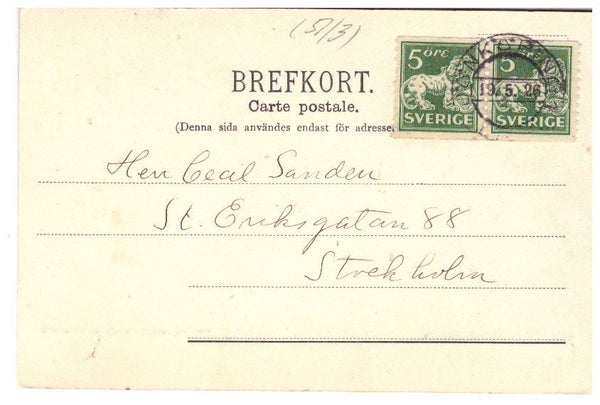 (51/3)
5 ÖRE
SVERIGE
5 ÖRE
SVERIGE
19.5.26
BREFKORT.
Carte postale.
(Denna sida användes endast för adresse
Herr Cecil Sanden
St. Eriksgatan 88
Stockholm